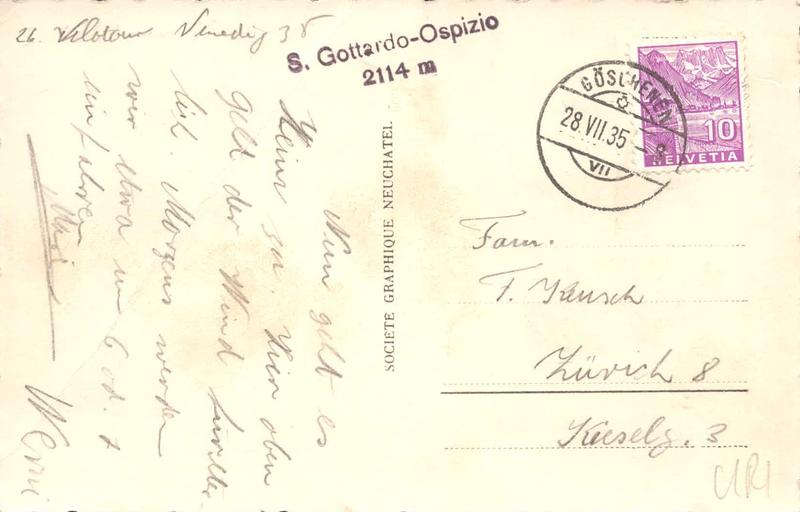 26. Velotour Venedig 35
S. Gottardo-Ospizio
2114 m
GÖSCHENEN
28.VII.35
VII
10
HELVETIA
Nun geht es
Heim zu. Hier oben
geht der Wind
lich. Morgens werden
wir etwa um 6 od. 7
einfahren
SOCIETE GRAPHIQUE NEUCHATEL
Fam.
F. Kusch
Zürich 8
Kieselg. 3
URI